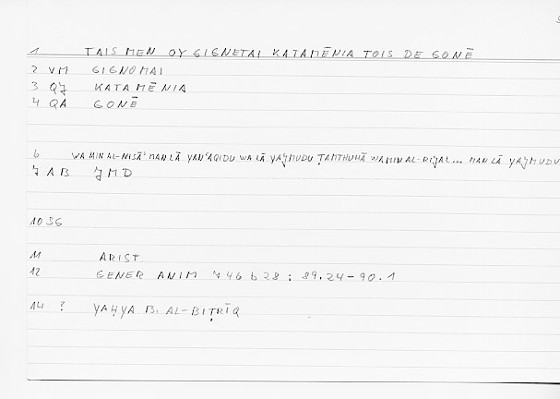 1 TAIS MEN OY GIGNETAI KATAMĒNIA TOIS DE GONĒ
2 VM GIGNOMAI
3 QJ KATAMĒNIA
4 QA GONĒ
6 WA MIN AL-NISĀʾ MAN LĀ YANʿAQIDU WA LĀ YAǦMUDU ṬAMTHUHĀ WA MIN AL-RIǦAL... MAN LĀ YAǦMUDU
7 AB ǦMD
10 36
11 ARIST
12 GENER ANIM 746 b 28 : 89.24-90.1
14 ? YAḤYA B. AL-BIṬRĪQ